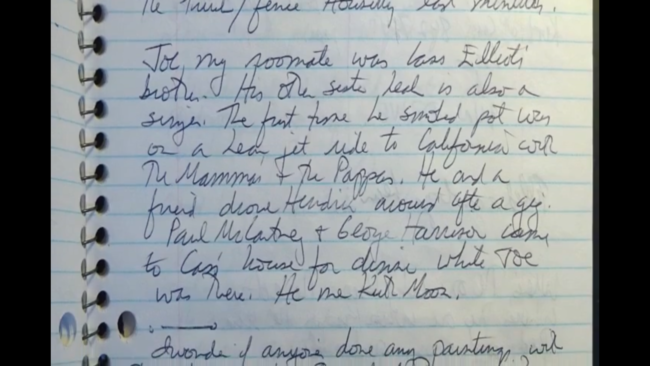 The Trual/fence Housing last
Joe, my roomate was Cass Elliots
brother. His other sister Leah is also a
singer. The first time he smoked pot was
on a Lear jet ride to California with
The Mammas + the Pappas. He and a
friend drove Hendrix around after a gig.
Paul McCartney + George Harrison came
to Cass' house for dinner while Joe
was there. He me Keith Moon.
I wonder if anyone's done any paintings with